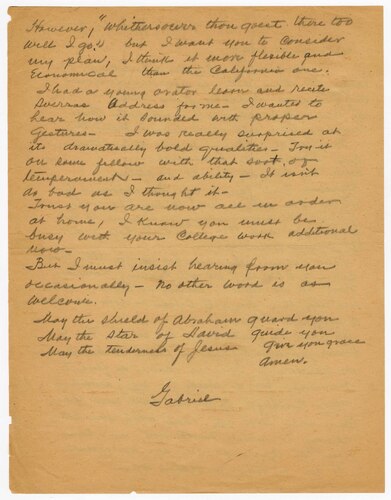 However, "whithersoever thou goest there too
will I go." but I want you to consider
my plan, I thinks it more flexible and
economical than the California one.
I had a young orator learn and recite
Address for me - I wanted to
hear how it sounded with proper
gestures - I was really surprised at
its dramatically bold qualities - Try it
on some fellow with that sort of
temperament - and ability - It isn't
as bad as I thought it -
Trust you are now all in order
at home, I know you must be
busy with your College work additional
now -
But I must insist hearing from you
occasionally - No other word is as
welcome.
May the shield of Abraham guard you
May the Star of David guide you
May the tenderness of Jesus give you grace
Amen.
Gabriel